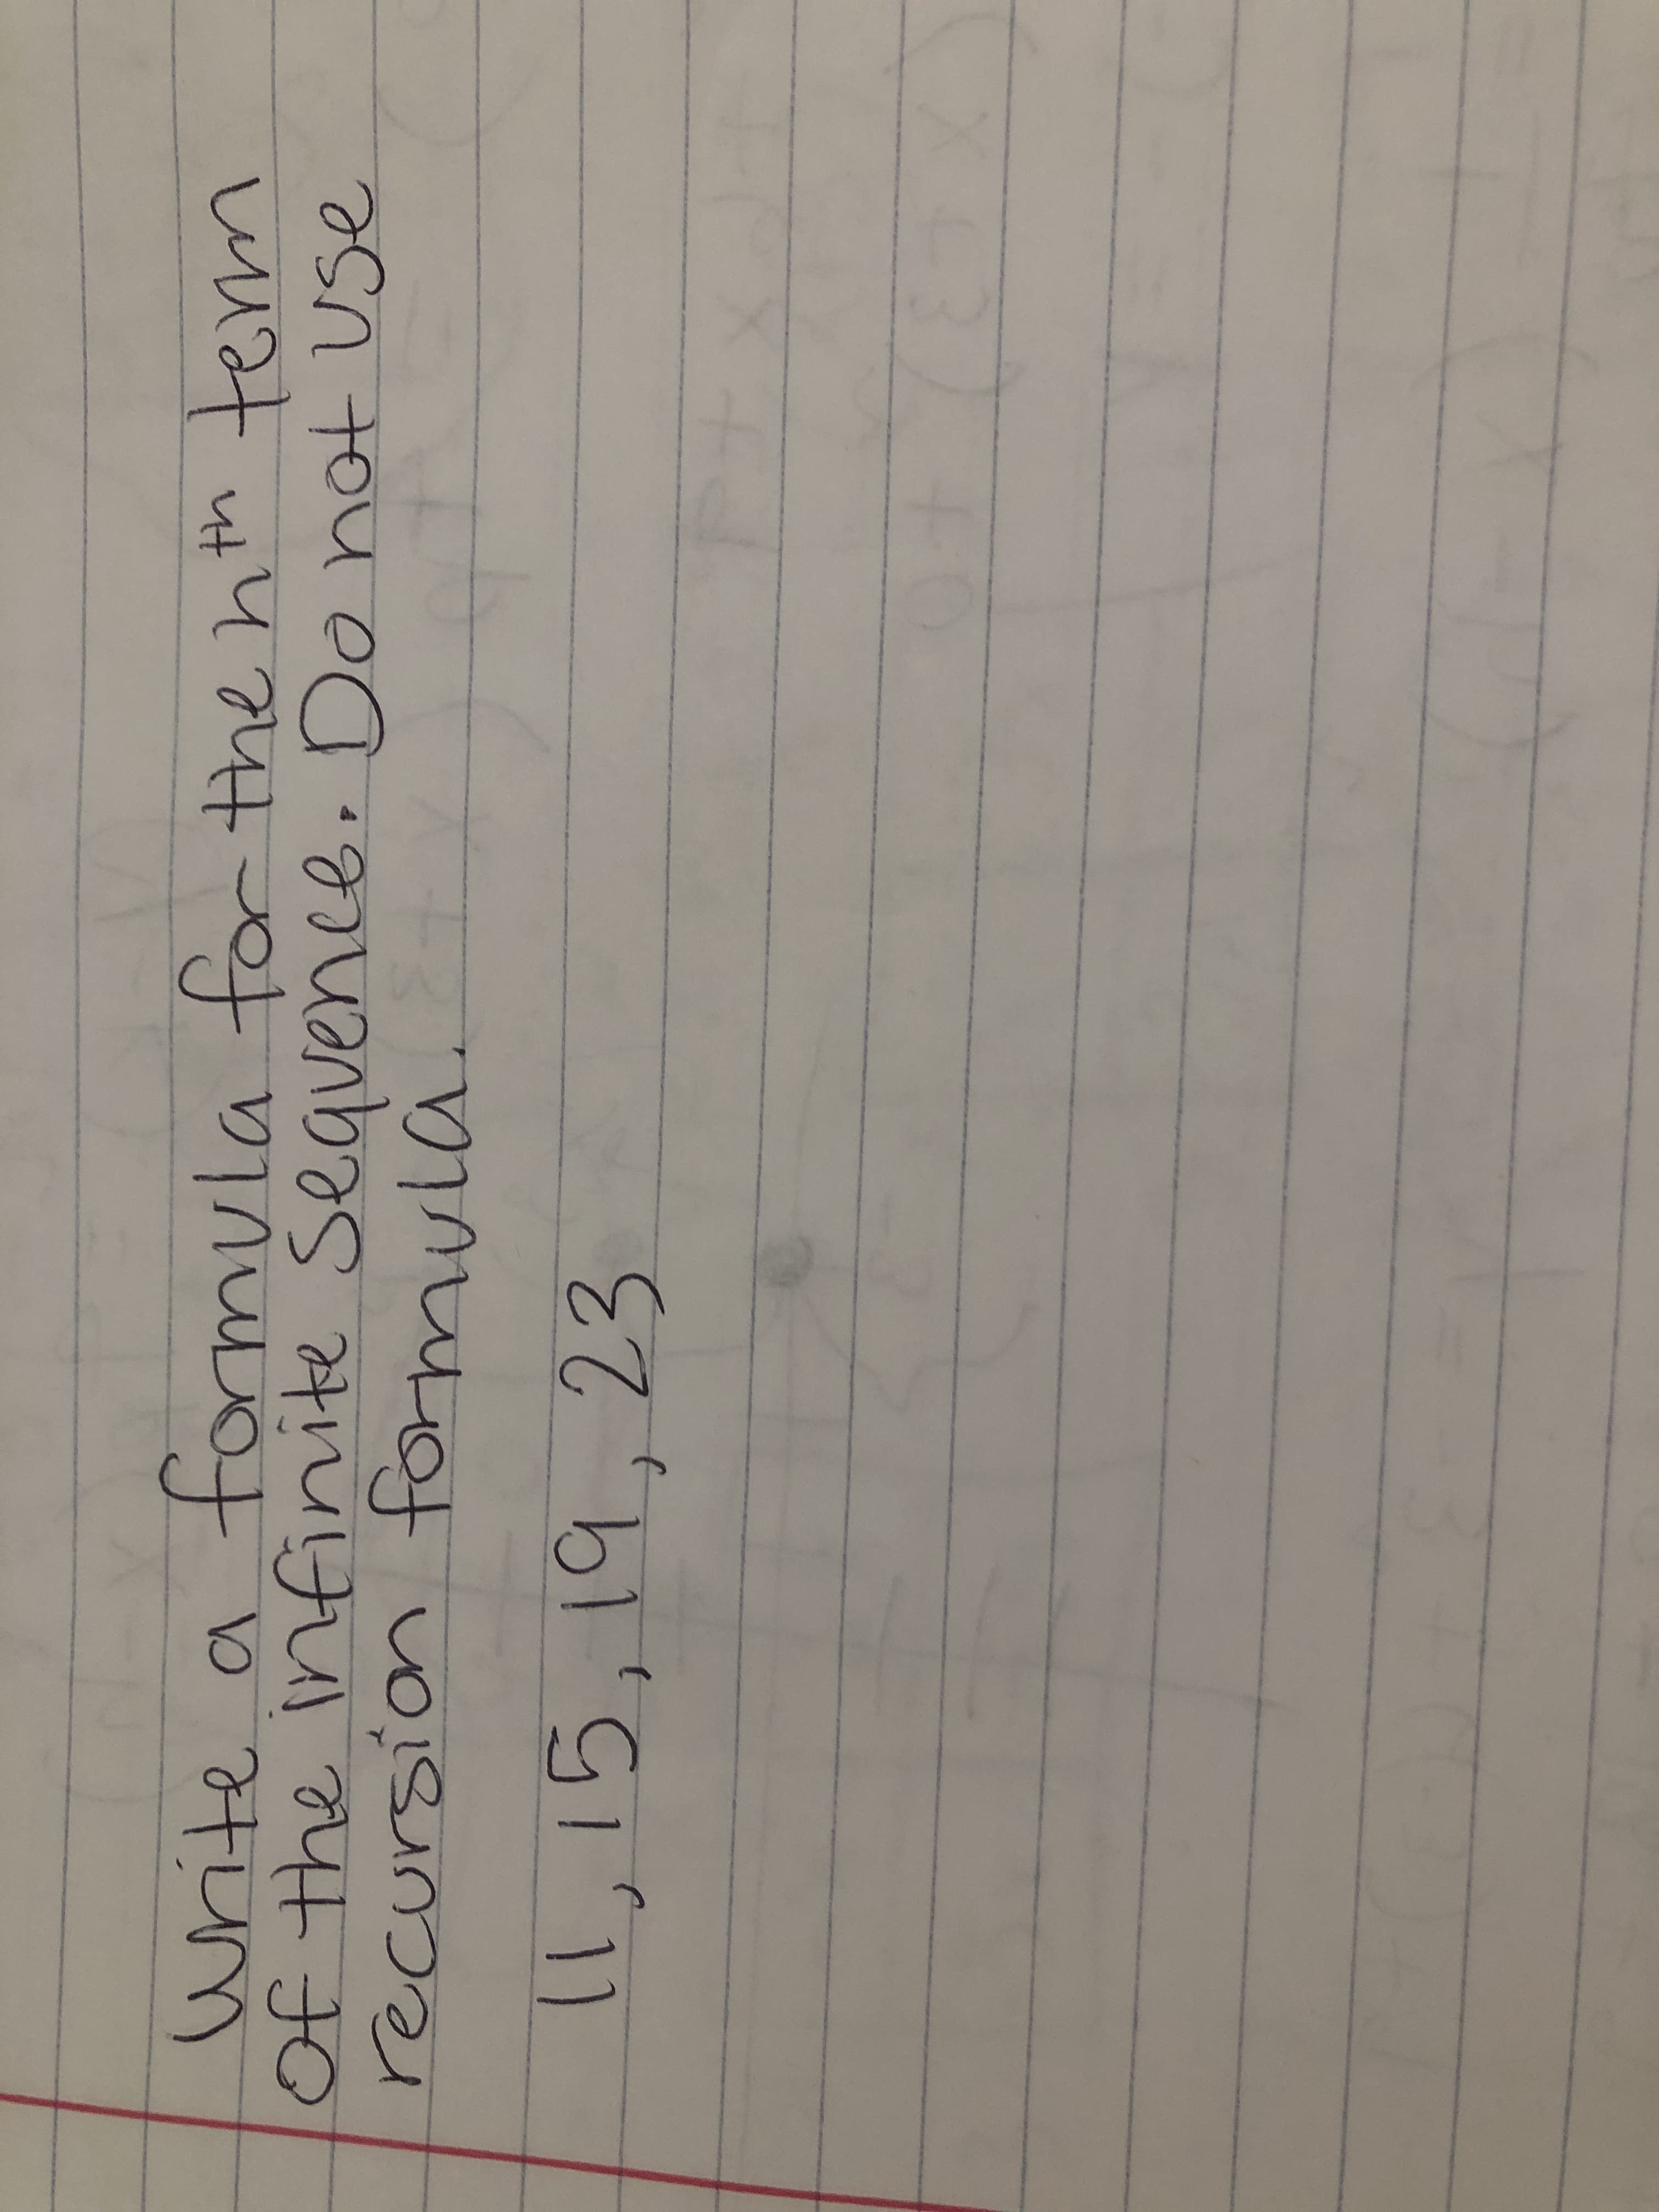 Write a formula for the nth term
of the infinite sequence. Do not use
recursion formula.
11, 15, 19, 23